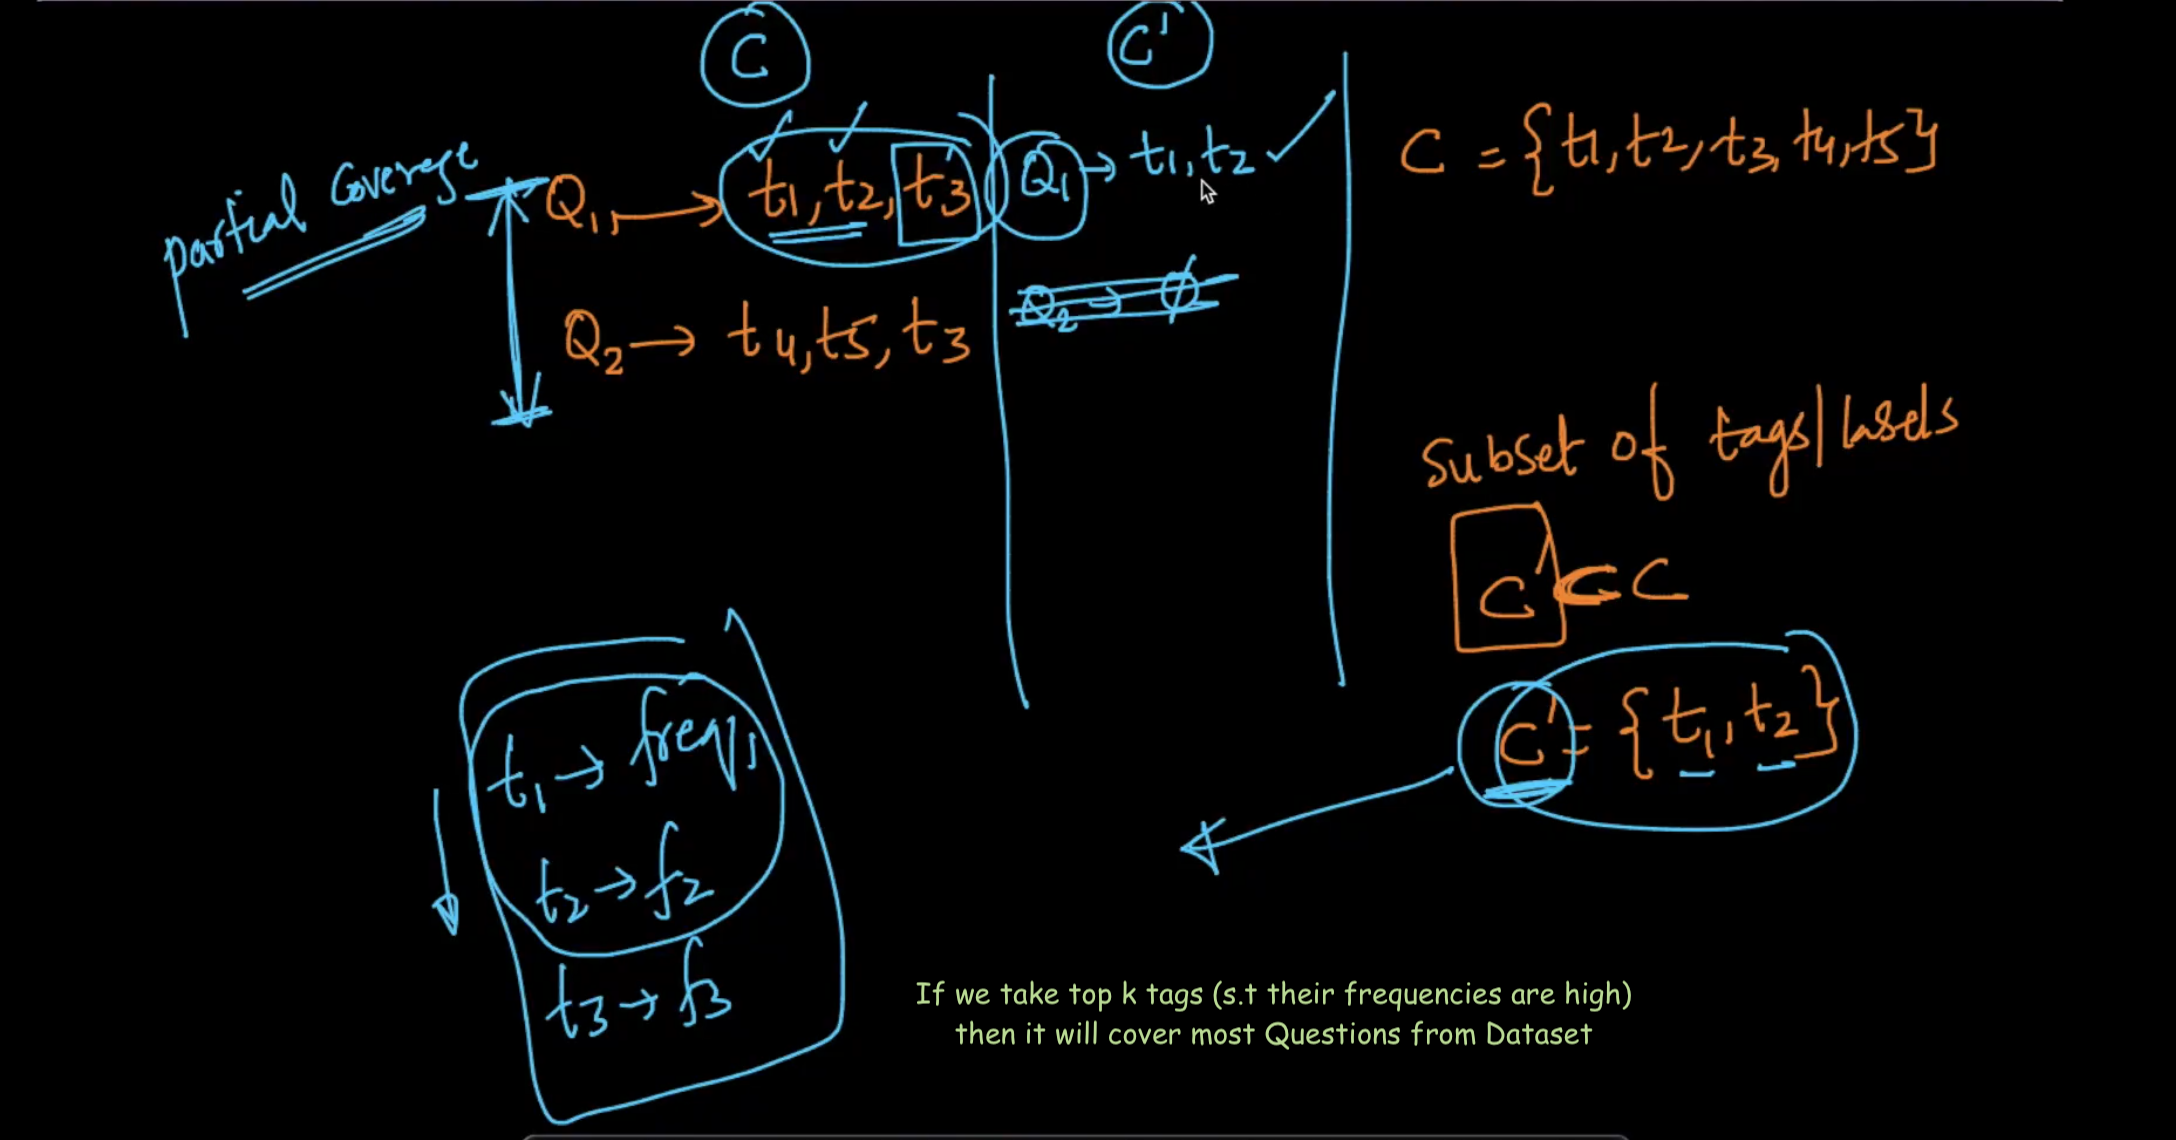 C
C'
partial Coverage
Q1 → t1, t2, t3
Q1 → t1, t2
Q2 → t4, t5, t3
Q2 → ϕ
C = {t1, t2, t3, t4, t5}
Subset of tags/labels
C' ⊂ C
C' = {t1, t2}
t1 → freq1
t2 → f2
t3 → f3
If we take top k tags (s.t their frequencies are high)
then it will cover most Questions from Dataset